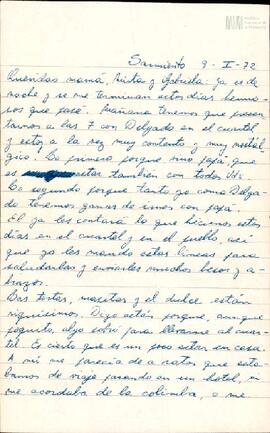 Sarmiento 9-II-72
Queridas mamá, Anita y Gabriela: ya es de
noche y se me terminan estos días hermo-
sos que pasé. Mañana tenemos que presen-
tarnos a las 7 con Delgado en el cuartel
y estoy a la vez muy contento y muy nostál-
gico. Lo primero porque vino papá, que
es estar también con todos Uds.
Lo segundo porque tanto yo como Delga-
do tenemos ganas de irnos con papá.
El ya les contará lo que hicimos estos
días en el cuartel y en el pueblo, así
que yo les mando estas líneas para
saludarlas y enviarles muchos besos y a-
brazos.
Las tortas, masitas y el dulce están
riquísimos. Digo están porque, aunque
poquito, algo sobró para llevarme al cuar-
tel. Es cierto que es un poco estar en casa.
A mí me parecía de a ratos que está-
bamos de viaje parando en un hotel, ni
me acordaba de la colimba, o me